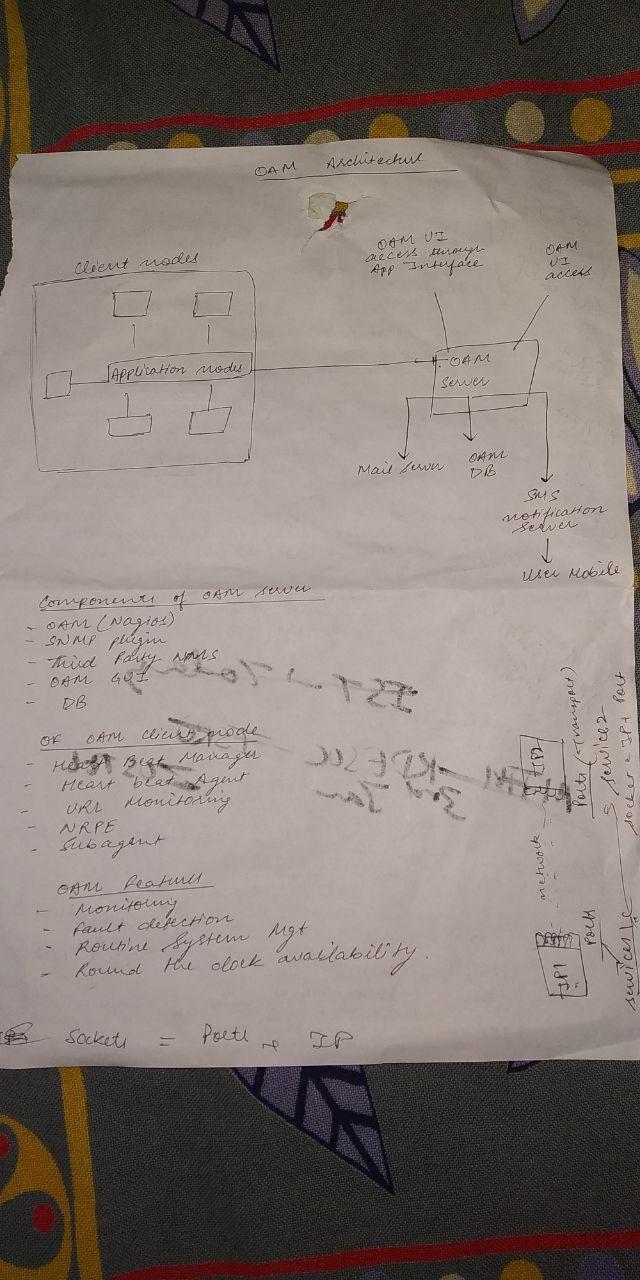 OAM Architecture
Client nodes
Application nodes
OAM UI
access through
App Interface
OAM
UI
access
OAM
Server
Mail Server
OAM
DB
SMS
notification
Server
User Mobile
Components of OAM server
- OAM (Nagios)
- SNMP plugin
- Third Party NMS
- OAM GUI
- DB
OF OAM client node
- Heart Beat Manager
- Heart beat Agent
- URL Monitoring
- NRPE
- Subagent
OAM Features
- Monitoring
- Fault detection
- Routine System Mgt
- Round the clock availability.
Sockets = Ports + IP
IP1
network
IP2
Ports
Ports (Transport)
services 1
services 2
Socket = IP + Port